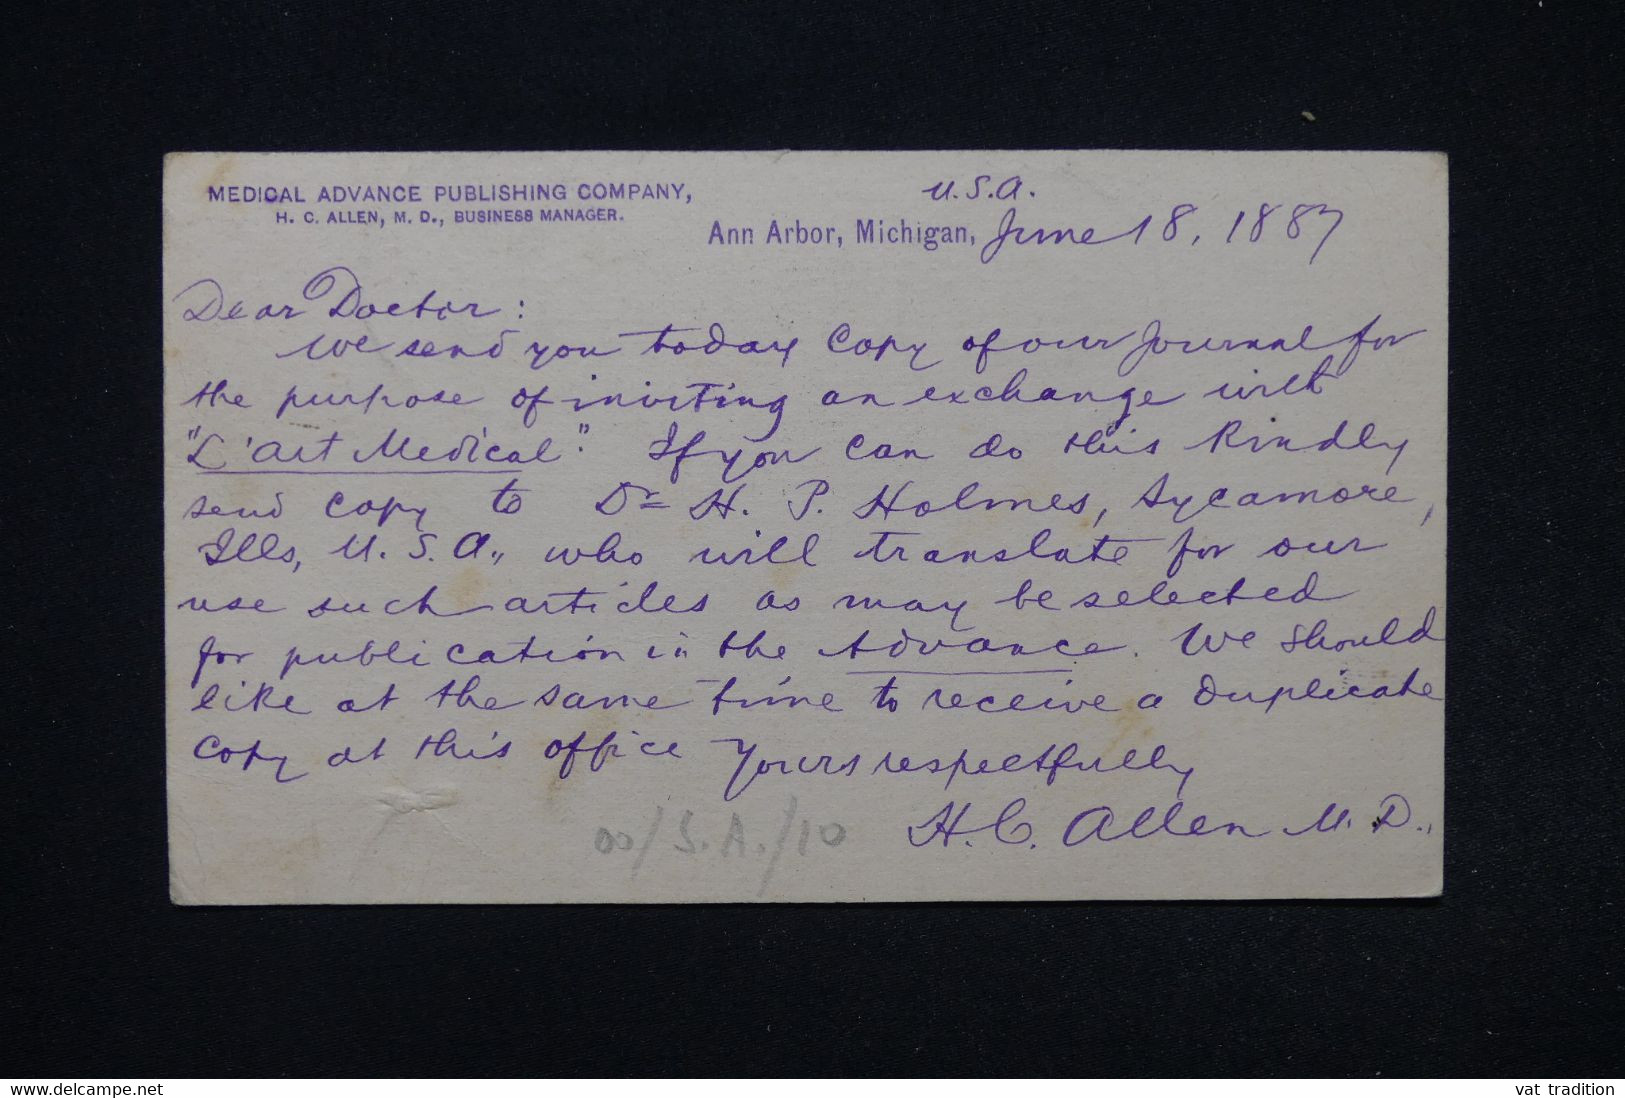 MEDICAL ADVANCE PUBLISHING COMPANY,
H. C. ALLEN, M. D., BUSINESS MANAGER.
U.S.A.
Ann Arbor, Michigan, June 18, 1887
Dear Doctor:
We send you today Copy of our Journal for
the purpose of inviting an exchange with
"L'Art Medical". If you can do this Kindly
send copy to Dr H. P. Holmes, Sycamore,
Ills, U.S.A., who will translate for our
use such articles as may be selected
for publication in the Advance. We should
like at the same time to receive a duplicate
copy at this office Yours respectfully
H. C. Allen M.D.,
00/S.A./10
www.delcampe.net
vat_tradition